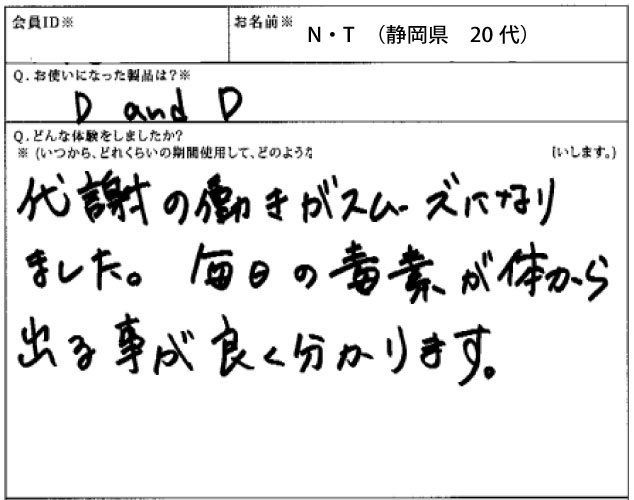 会員ID※
お名前※ N・T （静岡県　20代）
Q.お使いになった製品は?※
D and D
Q.どんな体験をしましたか?
※ (いつから、どれくらいの期間使用して、どのような
(いします。)
代謝の働きがスムーズになり
ました。毎日の毒素が体から
出る事が良く分かります。